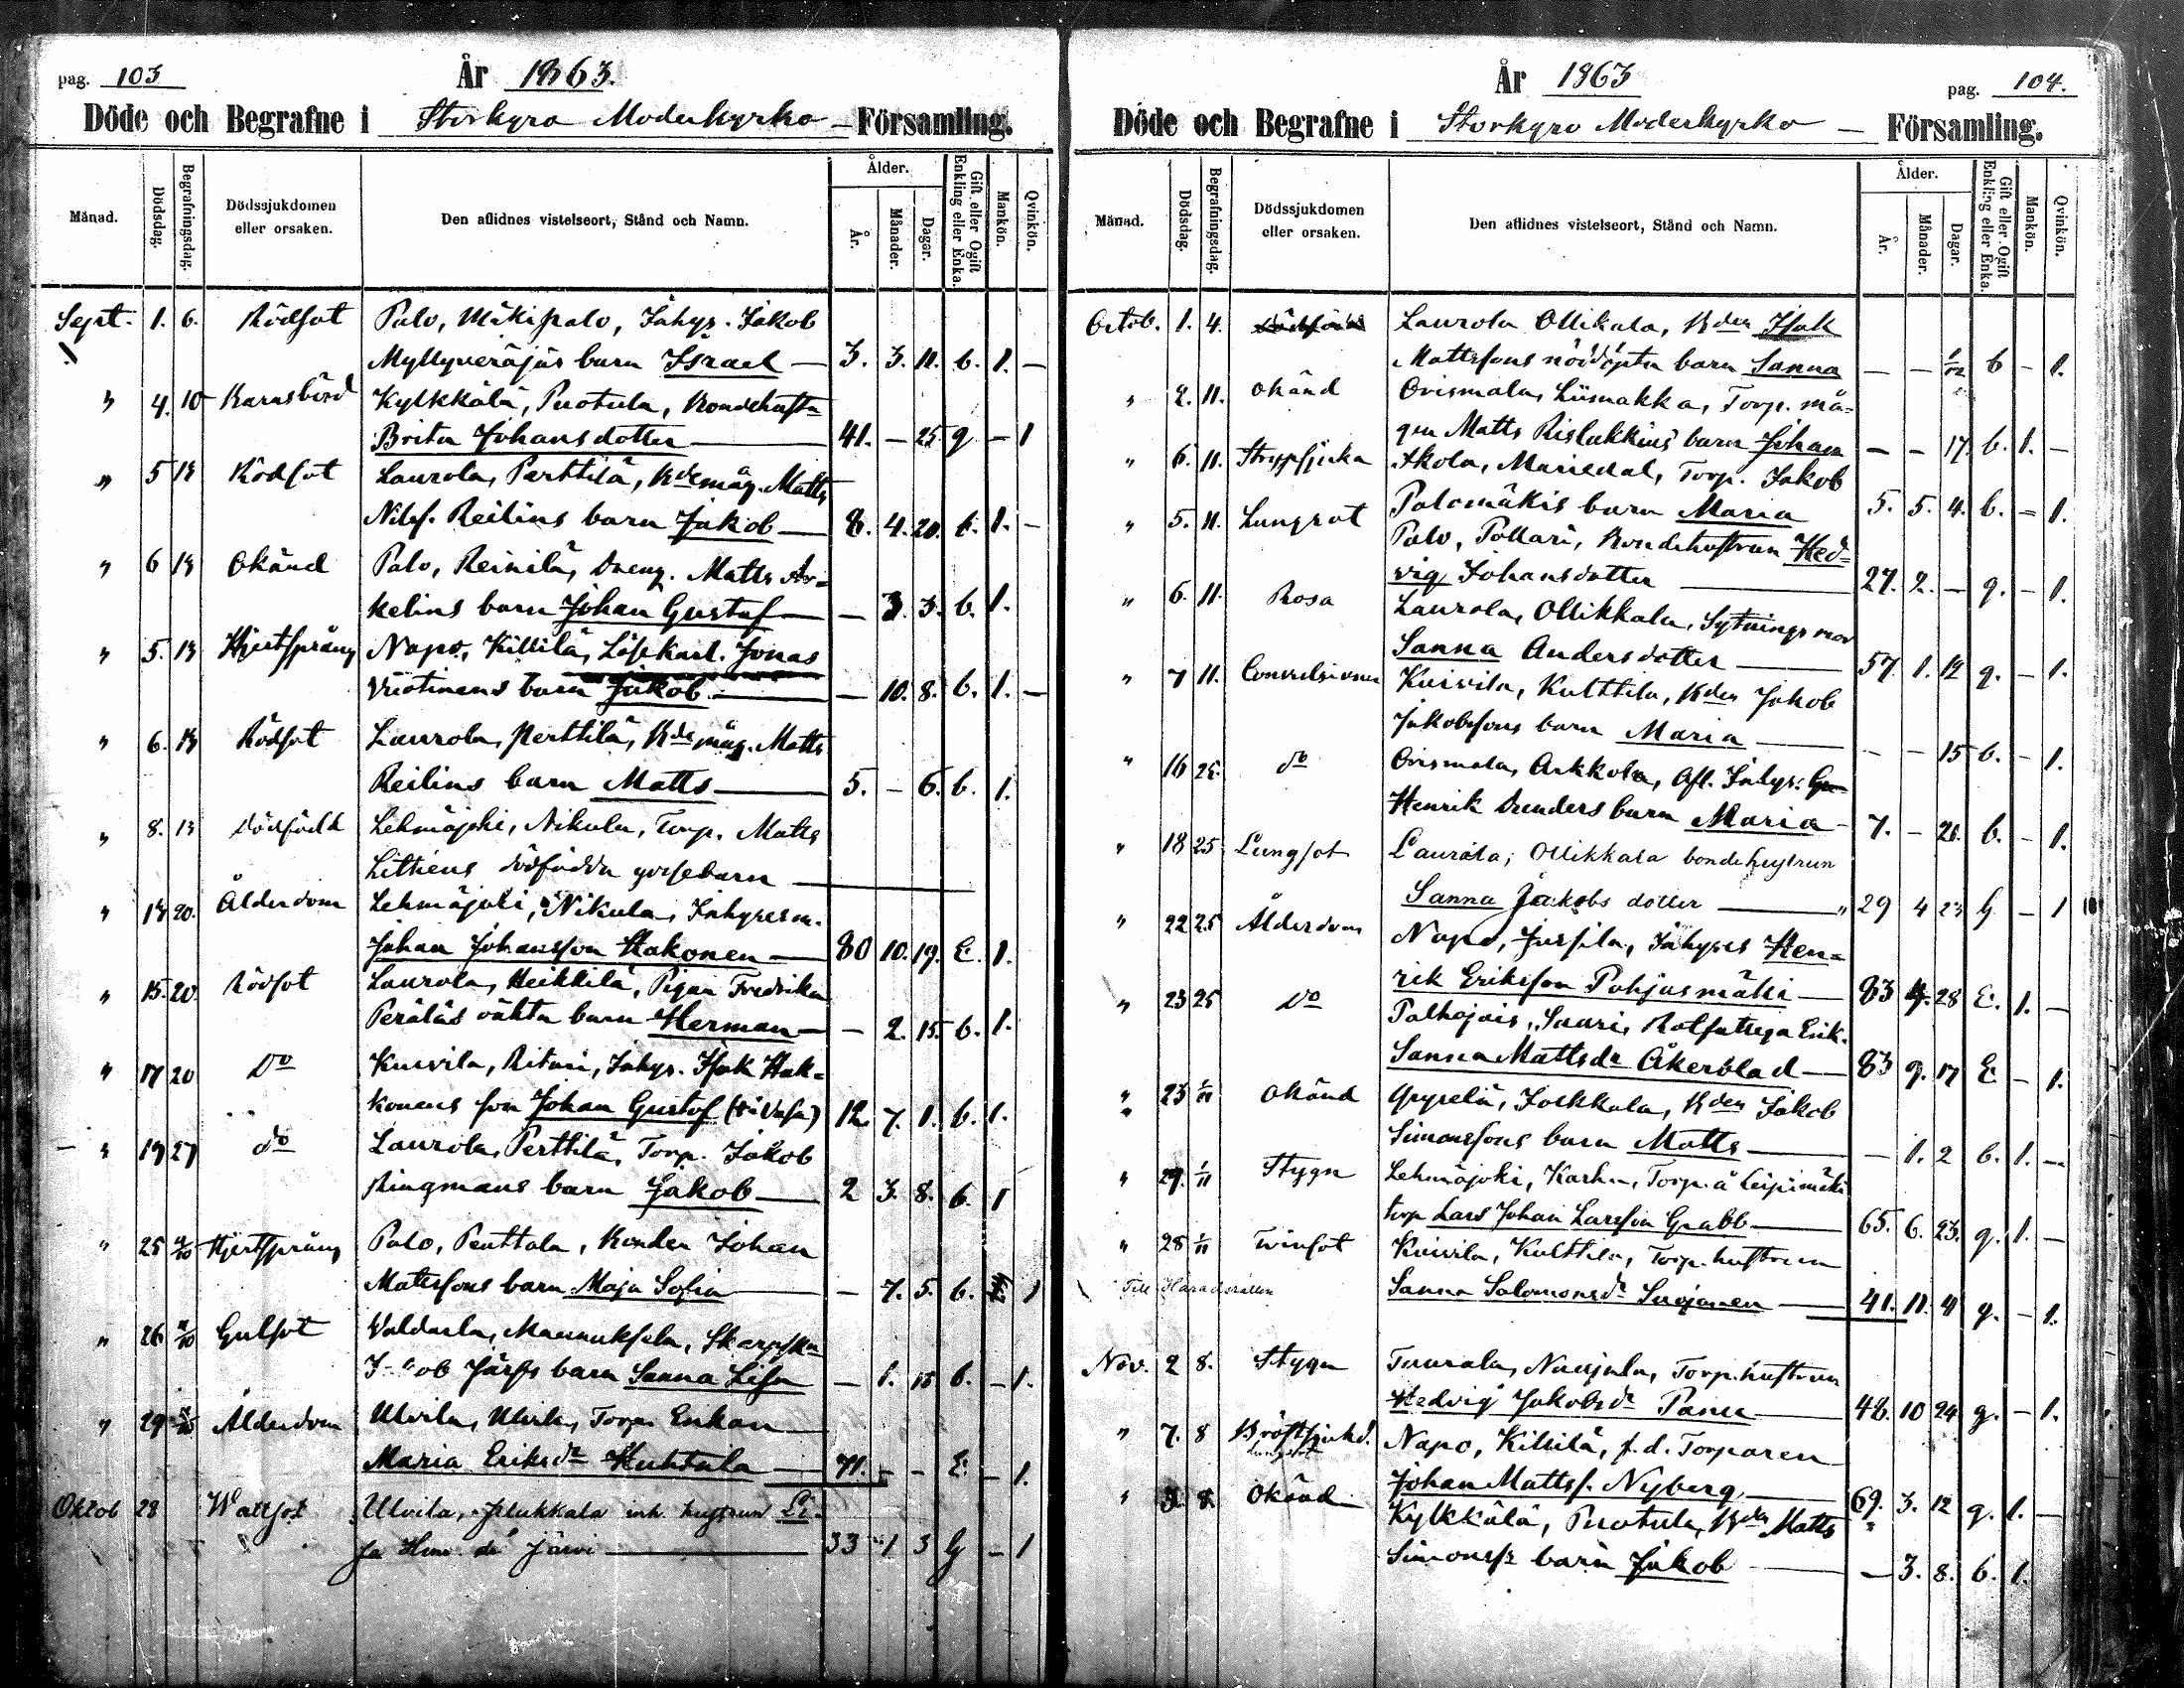 pag. 103
År 1863.
Döde och Begrafne i Storkyro Moderkyrko Församling.
Månad. Dödsdag. Begrafningsdag. Dödssjukdomen eller orsaken. Den aflidnes vistelseort, Stånd och Namn. Ålder. År. Månader. Dagar. Gift eller Ogift Enkling eller Enka. Mankön. Qvinkön.
Sept. 1. 6. Rödsot Palo, Mäkipalo, Inhys. Jakob
Myllyveräjäs barn Israel — 3. 3. 11. b. 1. —
" 4. 10 Barnsbörd Kylkkälä, Puotula, Bondehustr.
Brita Johansdotter — 41. — 25. g — 1
" 5 13 Rödsot Laurola, Perttilä, Bdemåg. Matts
Nilsf. Reilins barn Jakob — 8. 4. 20. b. 1. —
" 6 13 Okänd Palo, Reinilä, Dreng. Matts
kelins barn Johan Gustaf — — 3. 3. b. 1.
" 5. 13 Hjertsprång Napo, Killilä, Löskarl. Jonas
barn Jakob — — 10. 8. b. 1. —
" 6. 13 Rödsot Laurola, Perttilä, Bdemåg. Matts
Reilins barn Matts — 5. — 6. b. 1.
" 8. 13 dödfödd Lehmäjoki, Nikula, Torp. Matts
Littiens dödfödda gossebarn —
" 14 20. Ålderdom Lehmäjoki, Nikula, Inhysesm.
Johan Johansson Hakonen — 80 10. 19. E. 1.
" 15. 20. Rödsot Laurola, Heikkilä, Pigan Fredrika
Peräläs oäkta barn Herman — — 2. 15. b. 1.
" 17 20 Do Kuivila, Ritari, Inhys. Isak Hak-
konens son Johan Gustaf 12. 7. 1. b. 1.
— " 19 27 do Laurola, Perttilä, Torp. Jakob
Ringmans barn Jakob — 2 3. 8. b. 1
" 25 4/10 Hjertsprång Palo, Penttala, Bonden Johan
Matssons barn Maja Sofia — — 7. 5. b. 1
" 26 4/10 Gulsot Valdarla, Maunuksela,
Jakob Järfs barn Sanna Lisa — 1. 15 b. — 1.
" 29 4/10 Ålderdom Ulvila, Ulvila, Torp. Enkan
Maria Eriksdr Huhtala — 71. — — E. — 1.
Oktob 28 Wattsot Ulvila, Flukkala inh. hustrun Li-
sa Järvi — 33 1 3 G — 1
År 1863
pag. 104.
Döde och Begrafne i Storkyro Moderkyrko — Församling.
Månad. Dödsdag. Begrafningsdag. Dödssjukdomen eller orsaken. Den aflidnes vistelseort, Stånd och Namn. Ålder. År. Månader. Dagar. Gift eller Ogift Enkling eller Enka. Mankön. Qvinkön.
Octob. 1. 4. Laurola Ollikala, Bden Isak
Mattssons nöddöpta barn Sanna — — 1/12 b — 1.
" 2. 11. okänd Orismala, Liimakka, Torp. må-
gen Matts Rislakkins barn Johan — — 17. b. 1. —
" 6. 11. Strypsjuka Ikola, Mariedal, Torp. Jakob
Palomäkis barn Maria 5. 5. 4. b. — 1.
" 5. 11. Lungsot Palo, Pollari, Bondehustrun Hed-
vig Johansdotter — 27. 2. — g. — 1.
" 6. 11. Rosa Laurola, Ollikkala, Sytningsmor
Sanna Andersdotter — 57. 1. 19 g. — 1.
" 7 11. Convulsioner Kuivila, Kulttila, Bden Jakob
Jakobssons barn Maria — — — 15 b. — 1.
" 16 25. do Orismala, Arkkola, Afl. Inhys.
Henrik Dunders barn Maria — 7. — 21. b. — 1.
" 18 25 Lungsot Laurola, Ollikkala bondehustrun
Sanna Jakobs dotter — 29 4 23 G — 1
" 22 25 Ålderdom Napo, Jussila, Inhyses Hen-
rik Eriksson Pohjasmäki — 83 4. 28 E. 1. —
" 23 25 Do Palhojais, Suuri, Rotfattiga Enk.
Sanna Mattsdr Åkerblad — 83 9. 17 E — 1.
" 23 1/11 okänd Gyyrelä, Jockkala, Bden Jakob
Simonssons barn Matts — — 1. 2 b. 1. —
" 29. 1/11 Stygn Lehmäjoki, Karhu, Torp. å Leipimäki
torp Lars Johan Larsson Grabb — 65. 6. 23. g. 1. —
" 28 1/11 Tvinsot Kuivila, Kulttila, Torp. hustrun
Till Häradsrätten Sanna Salomonsdr Luojanen — 41. 11. 4 g. — 1.
Nov. 2 8. Stygn Taurala, Naarjala, Torp. hustrun
Hedvig Jakobsdr Panu — 48. 10 24 g. — 1.
" 7. 8 Bröstsjukd. Napo, Killilä, f.d. Torparen
Lungsot Johan Mattss. Nyberg — 69. 3. 12 g. 1. —
" 3. 8. Okänd Kylkkälä, Puotula, Bden Matts
Simonss barn Jakob — — 3. 8. b. 1.